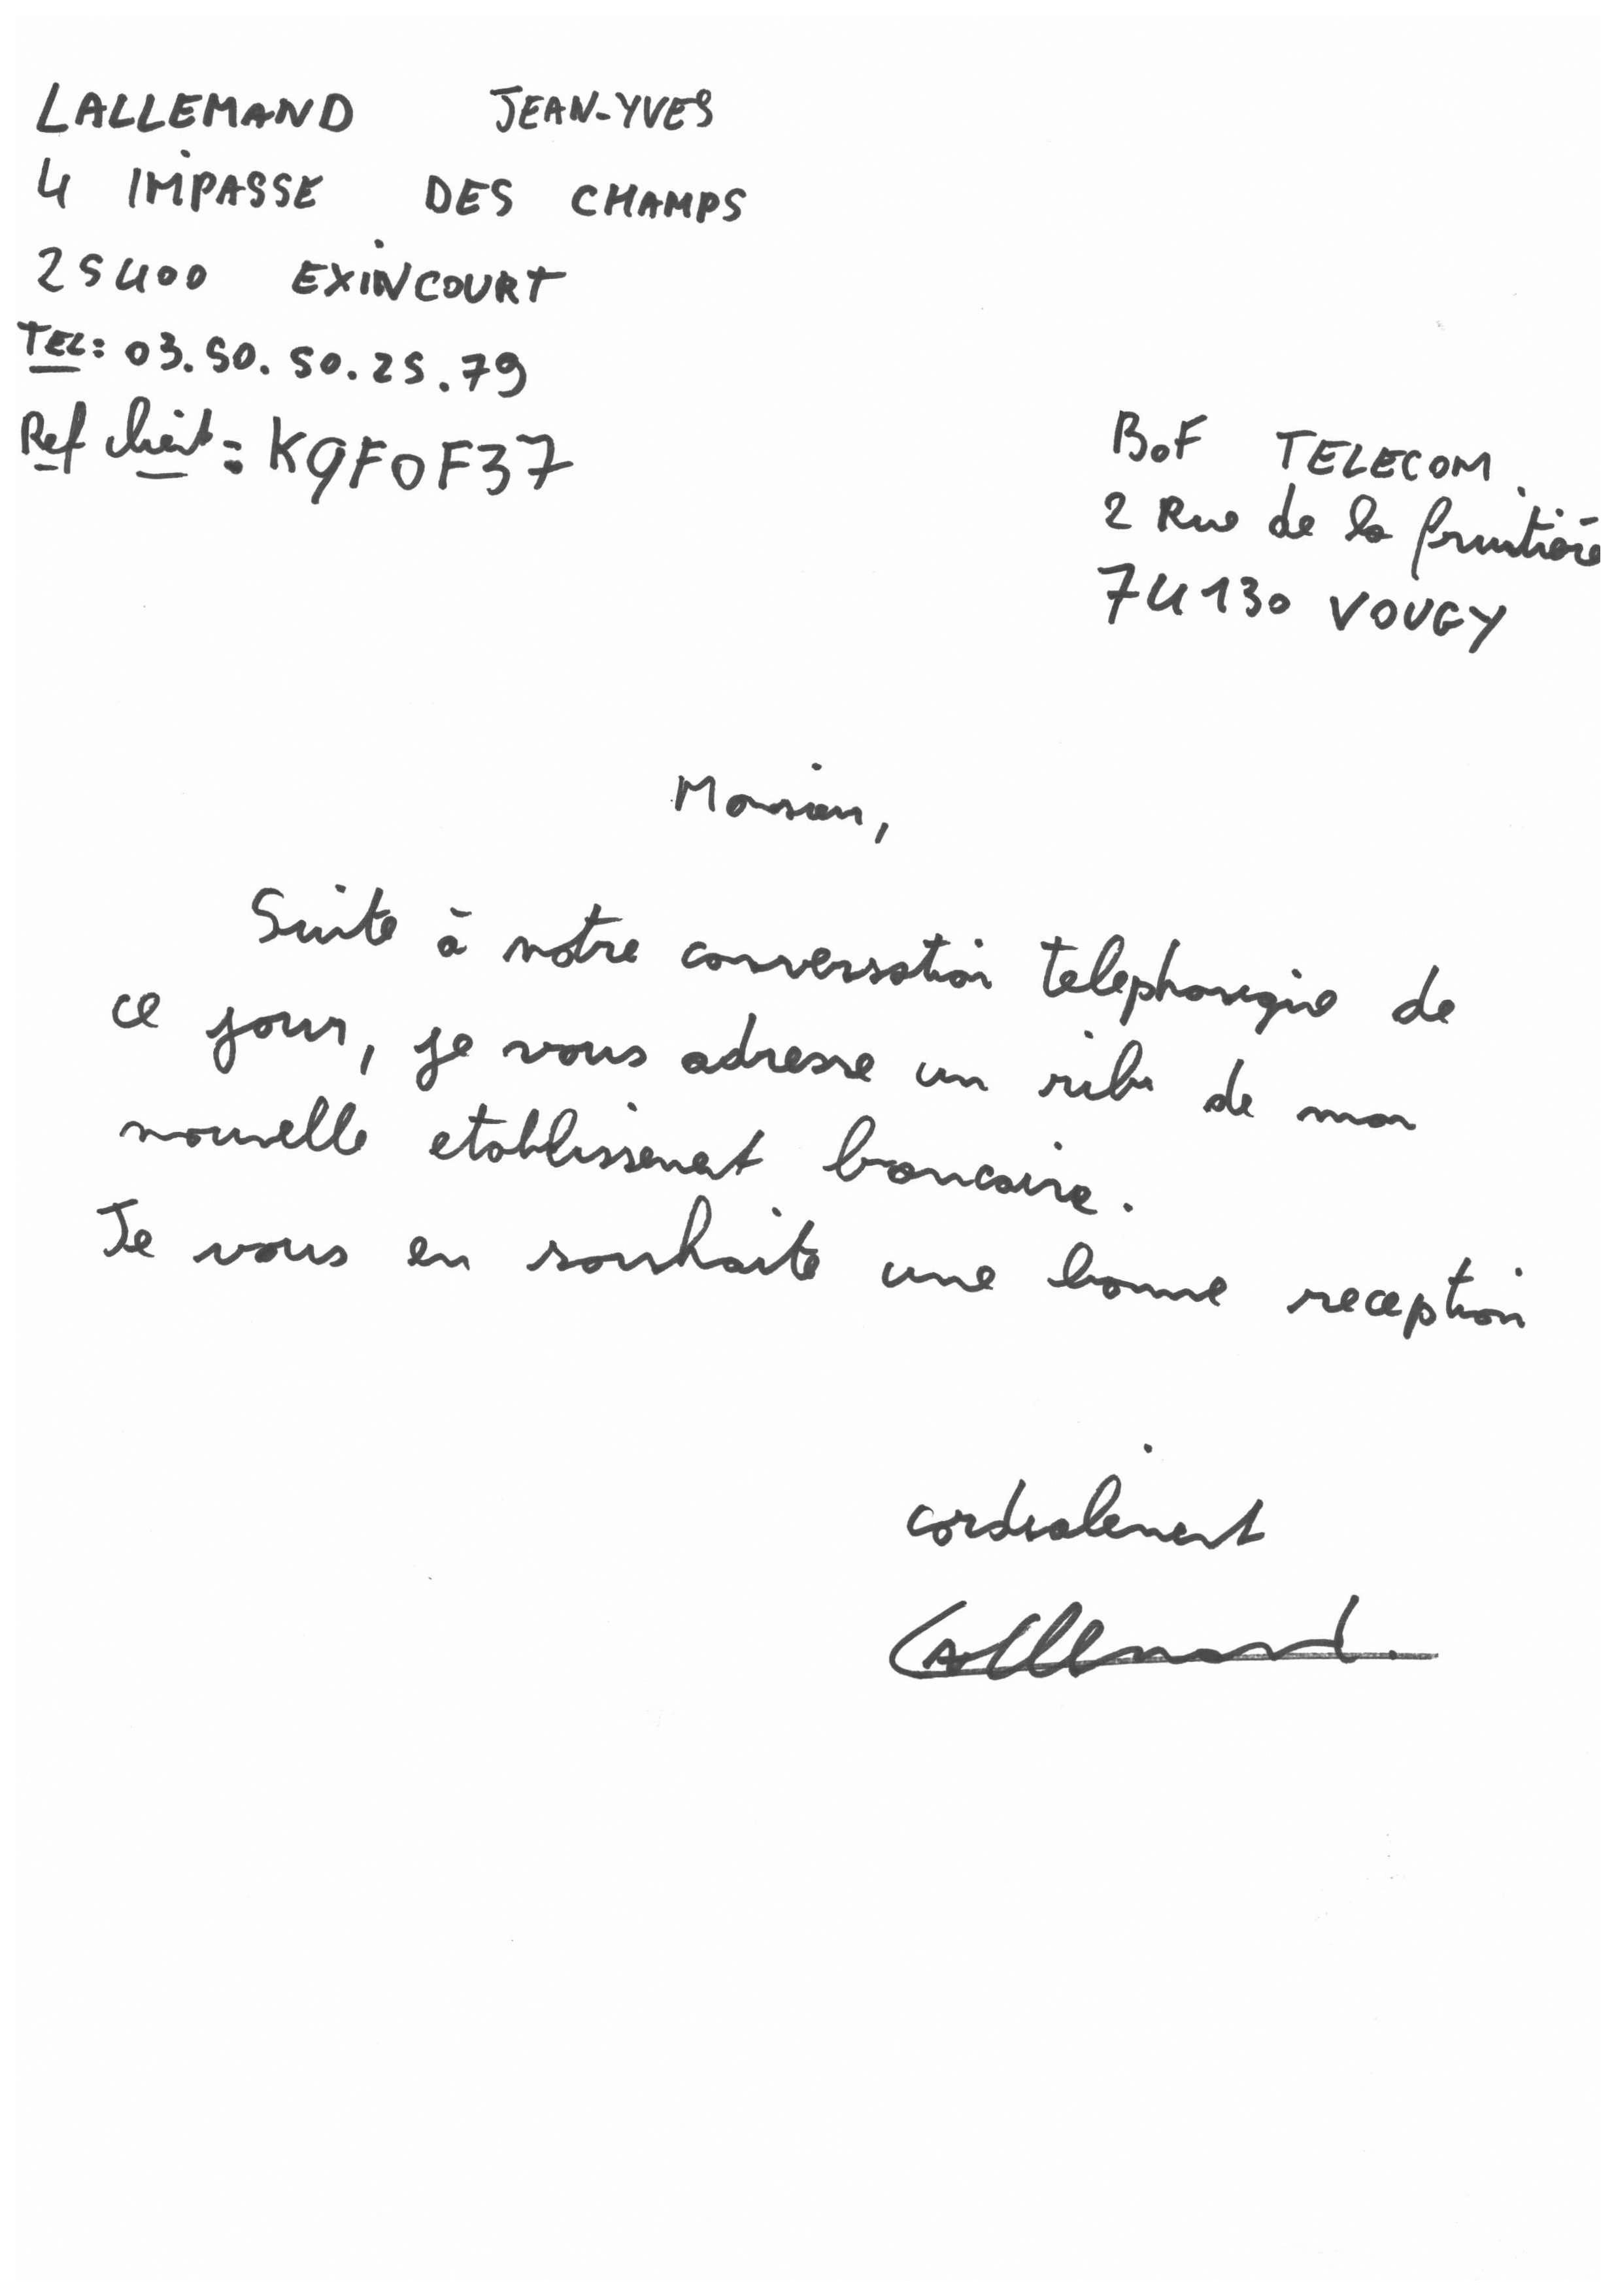 LALLEMAND JEAN-YVES
4 IMPASSE DES CHAMPS
25400 EXINCOURT
TEL: 03.50.50.25.79
Ref client: K9F0F37
BOF TELECOM
2 Rue de la fruitière
74130 VOUGY
Monsieur,
Suite à notre conversation telephonique de
ce jour, je vous adresse un rib de mon
nouvelle etablissement bancaire.
Je vous en souhaite une bonne reception
cordialement
Lallemand.